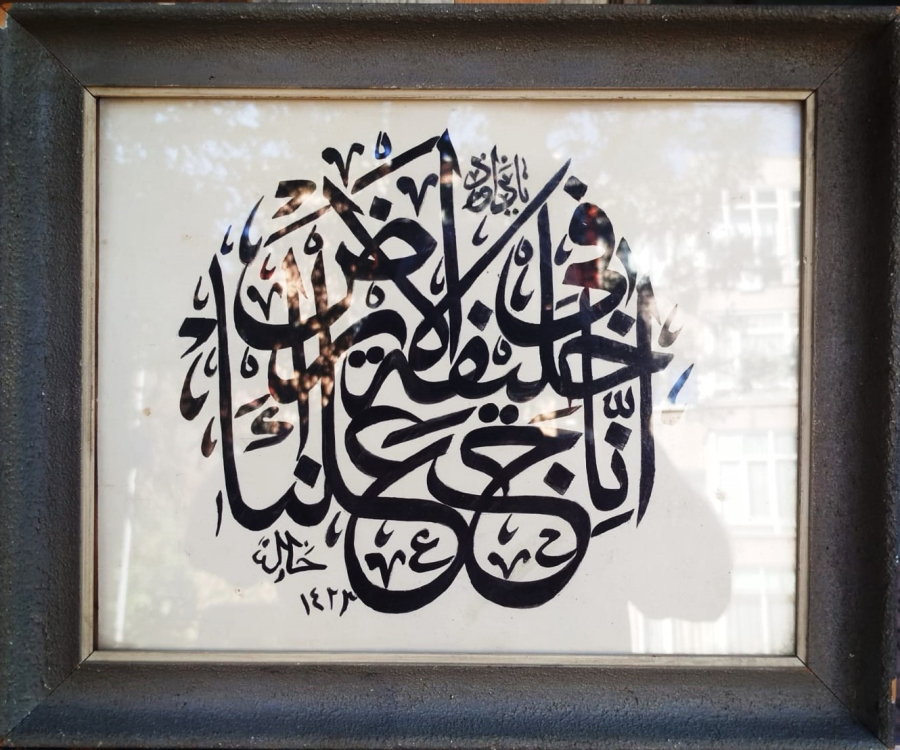 يا داود
إِنَّا جعلناك خليفة في الأرض
١٤٢٣